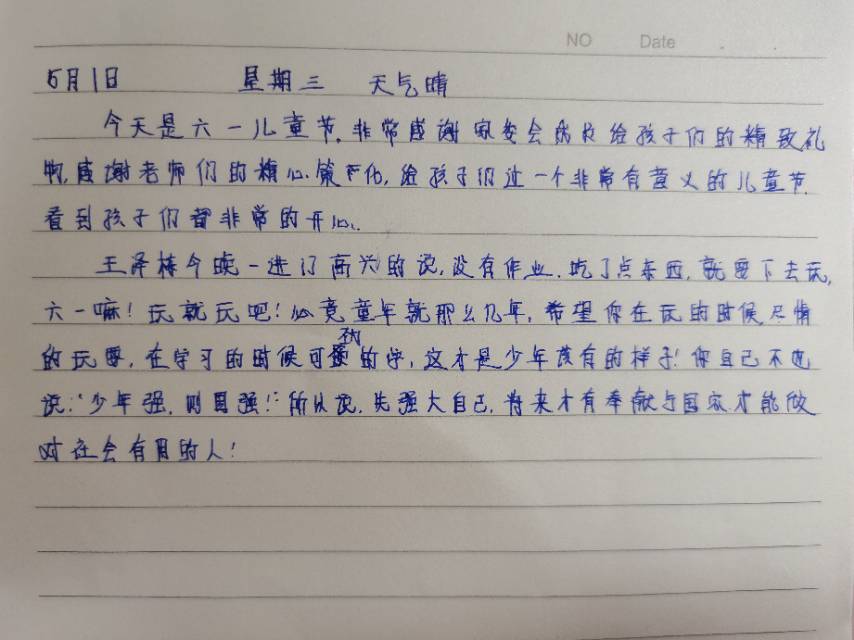 NO Date
6月1日 星期三 天气晴
今天是六一儿童节,非常感谢家委会成员给孩子们的精致礼
物,感谢老师们的精心策划,给孩子们过一个非常有意义的儿童节
看到孩子们都非常的开心.
王泽栋今晚一进门高兴的说,没有作业.吃了点东西,就要下去玩,
六一嘛!玩就玩吧!必竟童年就那么几年,希望你在玩的时候尽情
的玩耍,在学习的时候可 的学,这才是少年该有的样子!你自己不也
说:"少年强,则国强!"所以说,先强大自己,将来才有奉献与国家.才能做
对社会有用的人!